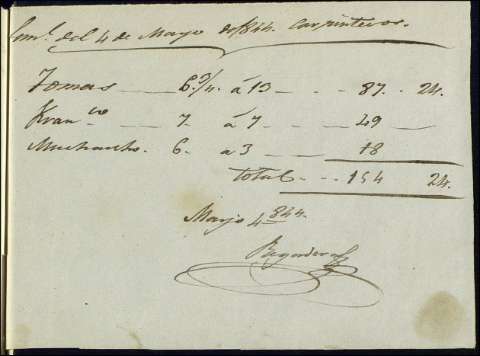 Sem.ª del 4 de Mayo de 1844. Carpinteros.
Tomas 6 3/4. á 13 87. 24.
Fran.co 7. á 7 49
Muchacho. 6. a 3 18
total. 154 24.
Mayo 4 844.